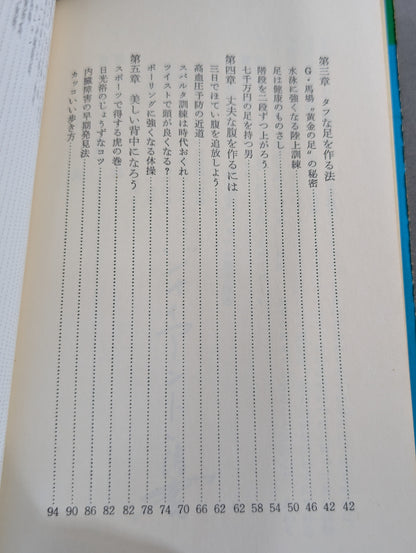 第三章 タフな足を作る法 42
G・馬場〝黄金の足〟の秘密 42
水泳に強くなる陸上訓練 46
足は健康のものさし 50
階段を二段ずつ上がろう 54
七千万円の足を持つ男 58
第四章 丈夫な腹を作るには 62
三日でほてい腹を追放しよう 62
高血圧予防の近道 66
スパルタ訓練は時代おくれ 70
ツイストで頭が良くなる? 74
ボーリングに強くなる体操 78
第五章 美しい背中になろう 82
スポーツで得する虎の巻 82
日光浴のじょうずなコツ 86
内臓障害の早期発見法 90
カッコいい歩き方 94